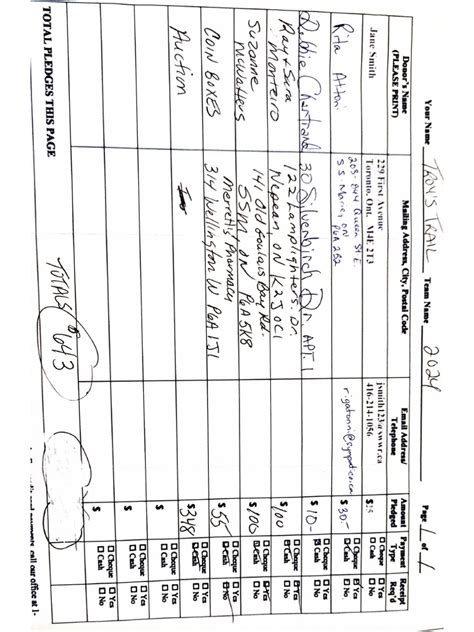 Your Name TROY'S TRAIL Team Name 2024 Page 1 of 1
Donor's Name (PLEASE PRINT)
Mailing Address, City, Postal Code
Email Address/ Telephone
Amount Pledged
Payment Type
Receipt Req'd
Jane Smith
229 First Avenue
Toronto, Ont. M4E 2T3
jsmith123@www.ca
416-214-1056
$25
☐ Cheque ☐ Cash
☐ Yes ☐ No
Rita
203-844 Queen St E.
S.S. Marie, ON
P6A 2B2
$30-
☐ Cheque
☐ Yes ☐ No
Debbie Chartrand
30 Silverbirch Dr. APT. 1
$10-
☐ Cheque Cash
☐ Yes ☐ No
Ray + Sara
Monteiro
122 Lamplighters Dr.
Nepean ON K2J 0C1
$100
☐ Cheque Cash
☐ Yes ☐ No
Suzanne
McWatters
141 Old Goulais Bay Rd.
SSM, ON P6A 5K8
$100
☐ Cheque Cash
☐ Yes ☐ No
COIN BOXES
Merrett's Pharmacy
314 Wellington W P6A 1J1
$55
☐ Cheque Cash
☐ Yes No
Auction
$348
☐ Cheque ☐ Cash
☐ Yes ☐ No
$
☐ Cheque ☐ Cash
☐ Yes ☐ No
$
☐ Cheque ☐ Cash
☐ Yes ☐ No
TOTAL PLEDGES THIS PAGE
TOTALS 643
$
call our office at 1-